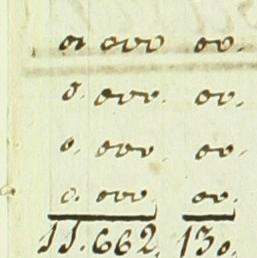 0. 000 00.
0. 000. 00.
0. 000. 00.
0. 000. 00.
11.662. 130.